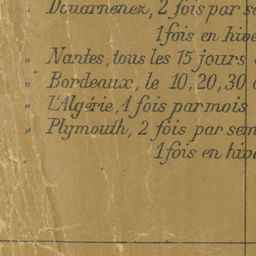 " Douarnenez, 2 fois par se
1 fois en hive
" Nantes, tous les 15 jours
" Bordeaux, le 10, 20, 30
" L'Algérie, 1 fois par mois
" Plymouth, 2 fois par sem
1 fois en hive